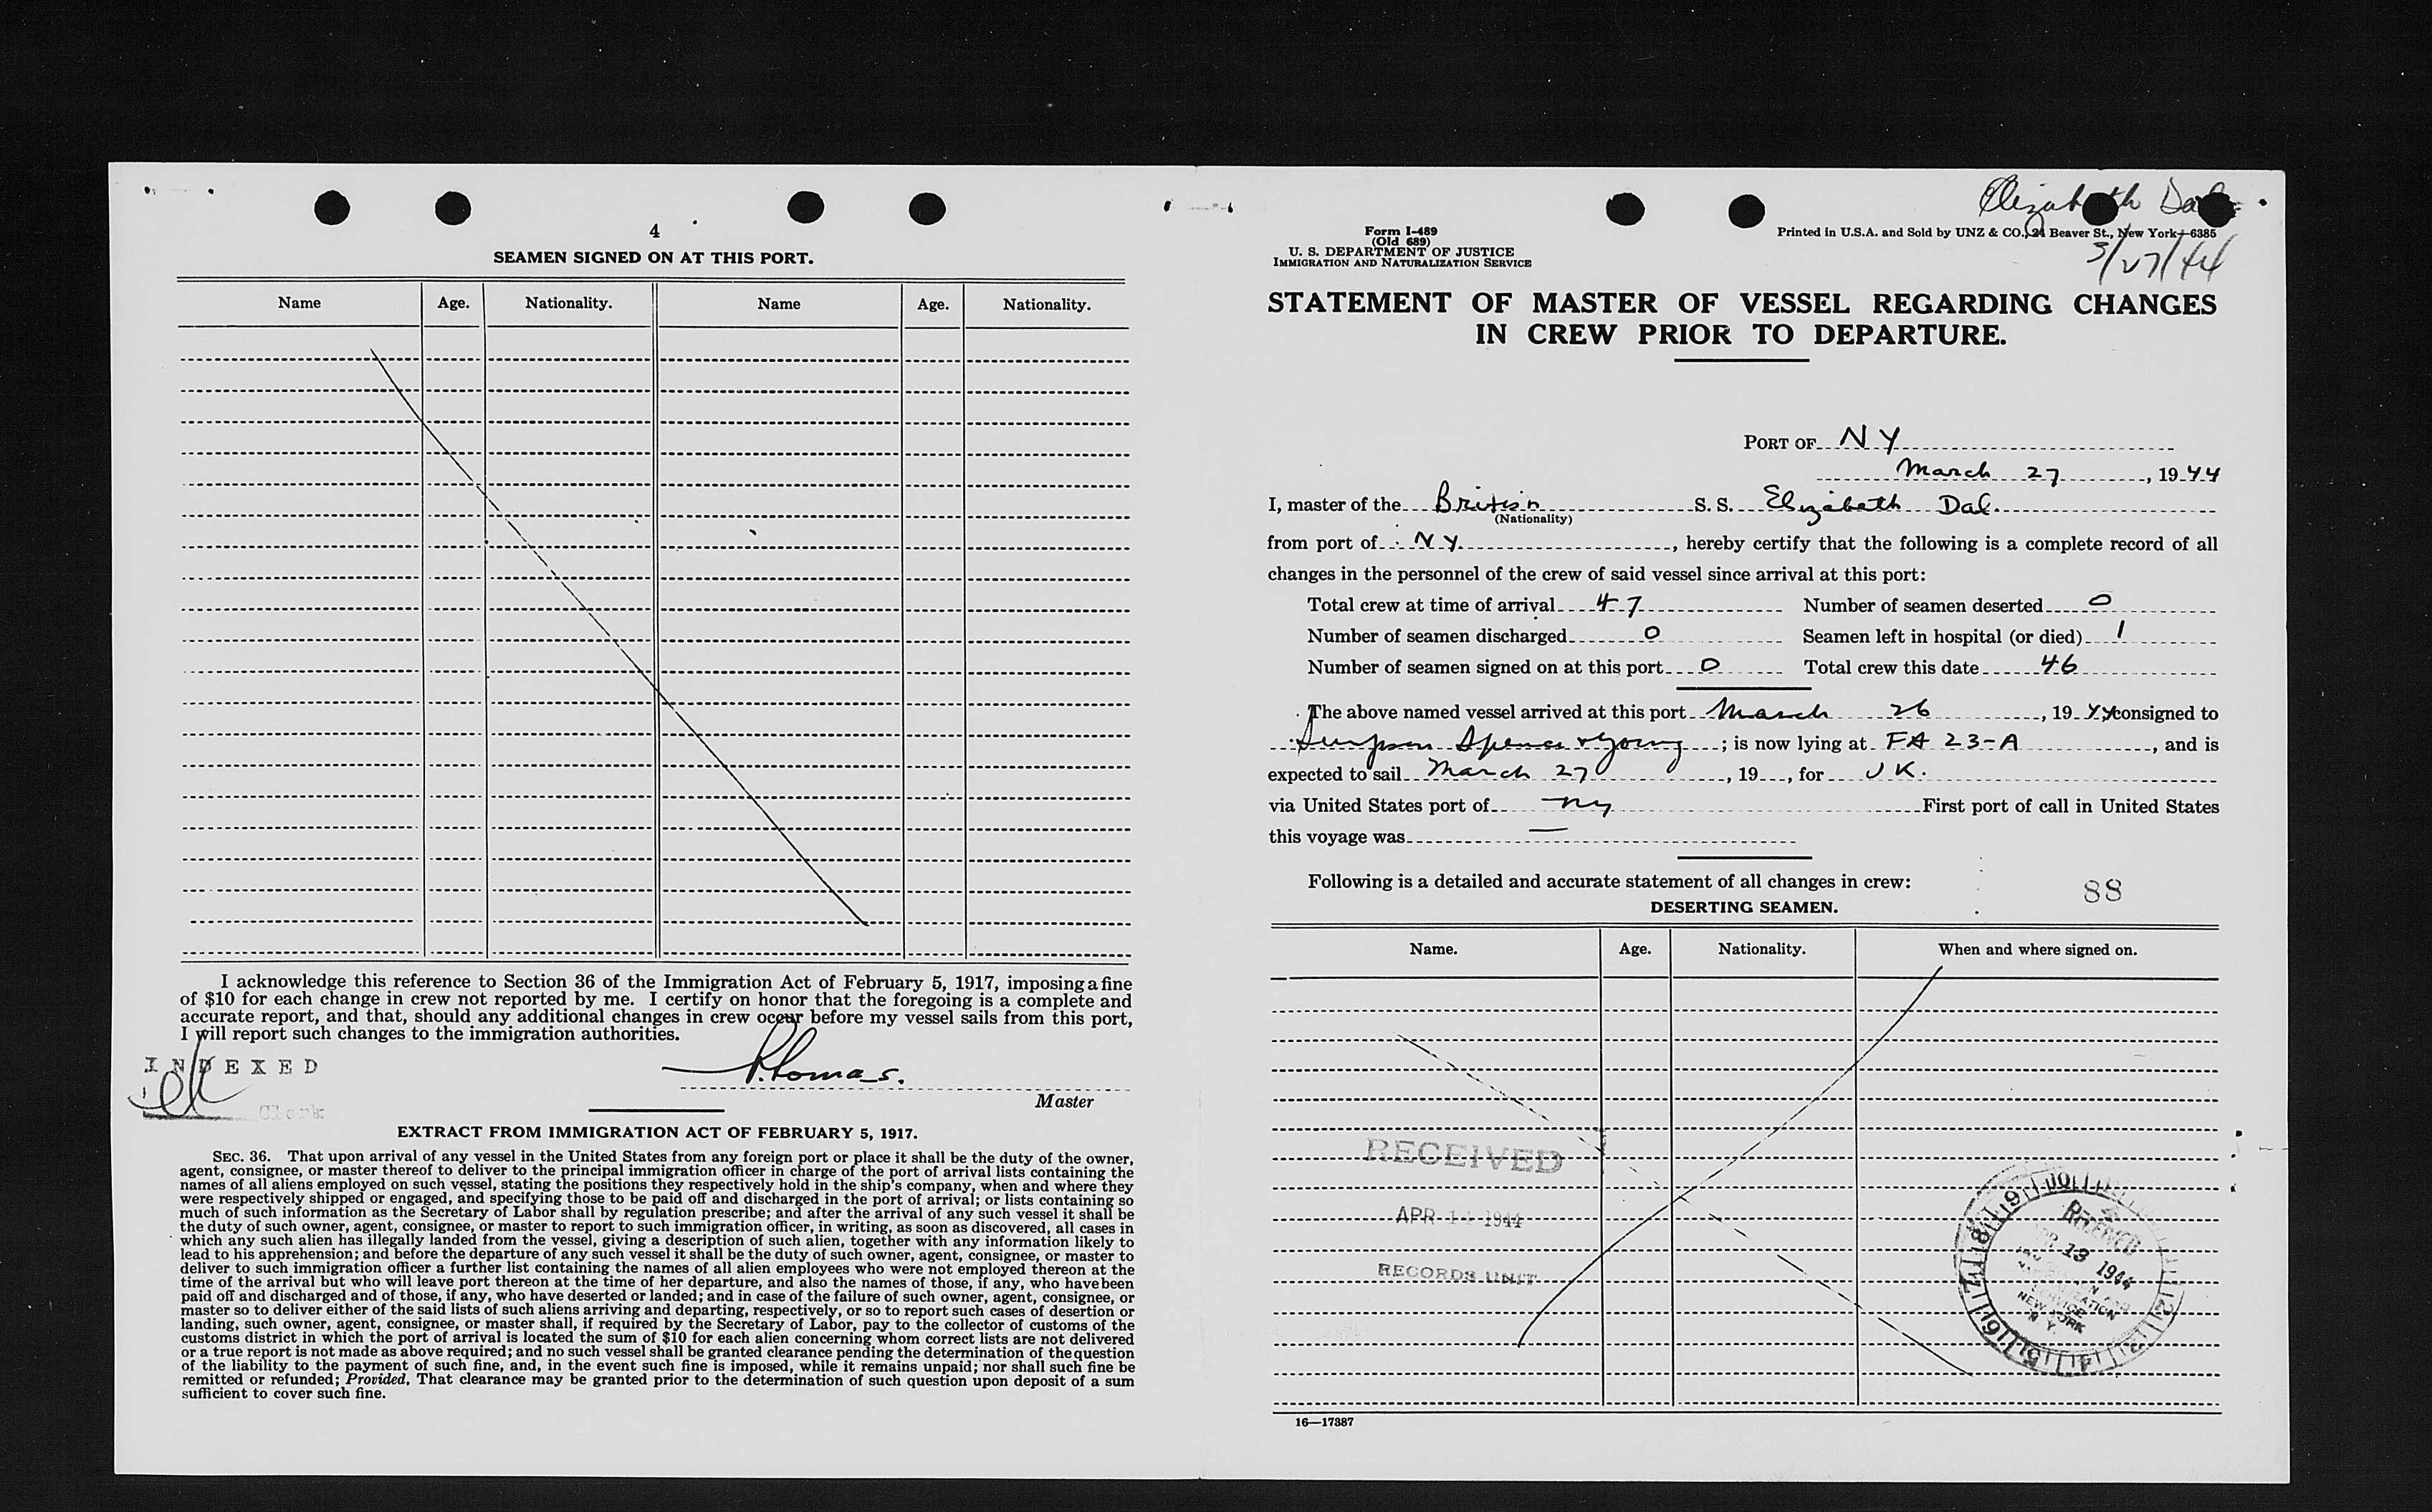 4
SEAMEN SIGNED ON AT THIS PORT.
Name Age. Nationality. Name Age. Nationality.
I acknowledge this reference to Section 36 of the Immigration Act of February 5, 1917, imposing a fine
of $10 for each change in crew not reported by me. I certify on honor that the foregoing is a complete and
accurate report, and that, should any additional changes in crew occur before my vessel sails from this port,
I will report such changes to the immigration authorities.
INDEXED
Clerk
Master
EXTRACT FROM IMMIGRATION ACT OF FEBRUARY 5, 1917.
SEC. 36. That upon arrival of any vessel in the United States from any foreign port or place it shall be the duty of the owner,
agent, consignee, or master thereof to deliver to the principal immigration officer in charge of the port of arrival lists containing the
names of all aliens employed on such vessel, stating the positions they respectively hold in the ship's company, when and where they
were respectively shipped or engaged, and specifying those to be paid off and discharged in the port of arrival; or lists containing so
much of such information as the Secretary of Labor shall by regulation prescribe; and after the arrival of any such vessel it shall be
the duty of such owner, agent, consignee, or master to report to such immigration officer, in writing, as soon as discovered, all cases in
which any such alien has illegally landed from the vessel, giving a description of such alien, together with any information likely to
lead to his apprehension; and before the departure of any such vessel it shall be the duty of such owner, agent, consignee, or master to
deliver to such immigration officer a further list containing the names of all alien employees who were not employed thereon at the
time of the arrival but who will leave port thereon at the time of her departure, and also the names of those, if any, who have been
paid off and discharged and of those, if any, who have deserted or landed; and in case of the failure of such owner, agent, consignee, or
master so to deliver either of the said lists of such aliens arriving and departing, respectively, or so to report such cases of desertion or
landing, such owner, agent, consignee, or master shall, if required by the Secretary of Labor, pay to the collector of customs of the
customs district in which the port of arrival is located the sum of $10 for each alien concerning whom correct lists are not delivered
or a true report is not made as above required; and no such vessel shall be granted clearance pending the determination of the question
of the liability to the payment of such fine, and, in the event such fine is imposed, while it remains unpaid; nor shall such fine be
remitted or refunded; Provided, That clearance may be granted prior to the determination of such question upon deposit of a sum
sufficient to cover such fine.
Elizabeth Dal
3/27/44
Form I-489
(Old 689)
U. S. DEPARTMENT OF JUSTICE
IMMIGRATION AND NATURALIZATION SERVICE
Printed in U.S.A. and Sold by UNZ & CO., 24 Beaver St., New York—6385
STATEMENT OF MASTER OF VESSEL REGARDING CHANGES
IN CREW PRIOR TO DEPARTURE.
PORT OF NY
March 27, 1944
I, master of the British S. S. Elizabeth Dal.
(Nationality)
from port of NY., hereby certify that the following is a complete record of all
changes in the personnel of the crew of said vessel since arrival at this port:
Total crew at time of arrival 47 Number of seamen deserted 0
Number of seamen discharged 0 Seamen left in hospital (or died) 1
Number of seamen signed on at this port 0 Total crew this date 46
The above named vessel arrived at this port March 26, 1944, consigned to
Simpson Spence & Young; is now lying at FA 23-A, and is
expected to sail March 27, 19, for UK.
via United States port of NY First port of call in United States
this voyage was —
Following is a detailed and accurate statement of all changes in crew:
88
DESERTING SEAMEN.
Name. Age. Nationality. When and where signed on.
RECEIVED
APR 11 1944
RECORDS UNIT
RECEIVED
APR 13 1944
NEW YORK
N. Y.
16—17387